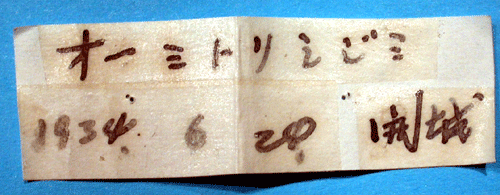 オーミトリシジミ
1934 6 24 開城